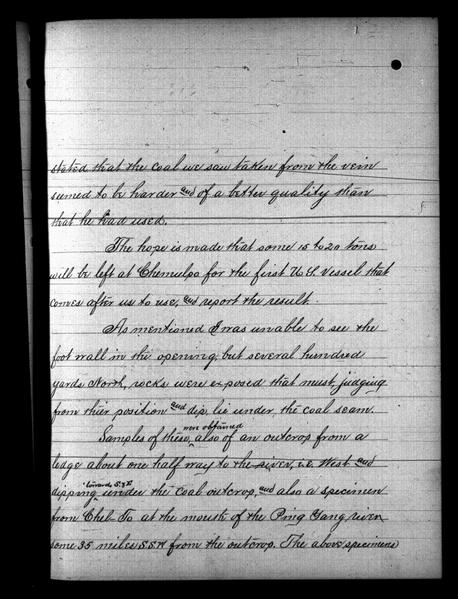 stated that the coal we saw taken from the vein
seemed to be harder and of a better quality than
that he had used.
The hope is made that some 15 to 20 tons
will be left at Chemulpo for the first U.S. Vessel that
comes after us to use, and report the result.
As mentioned I was unable to see the
foot wall in the opening, but several hundred
yards North, rocks were exposed that must, judging
from thier position and dip, lie under the coal seam.
were obtained
Samples of these, also of an outcrop from a
ledge about one half way to the river, i.e. West and
towards S. & E
dipping under the coal outcrop, and also a specimen
from Chel-To at the mouth of the Ping Yang river
some 35 miles S.S.W from the outcrop. The above specimens